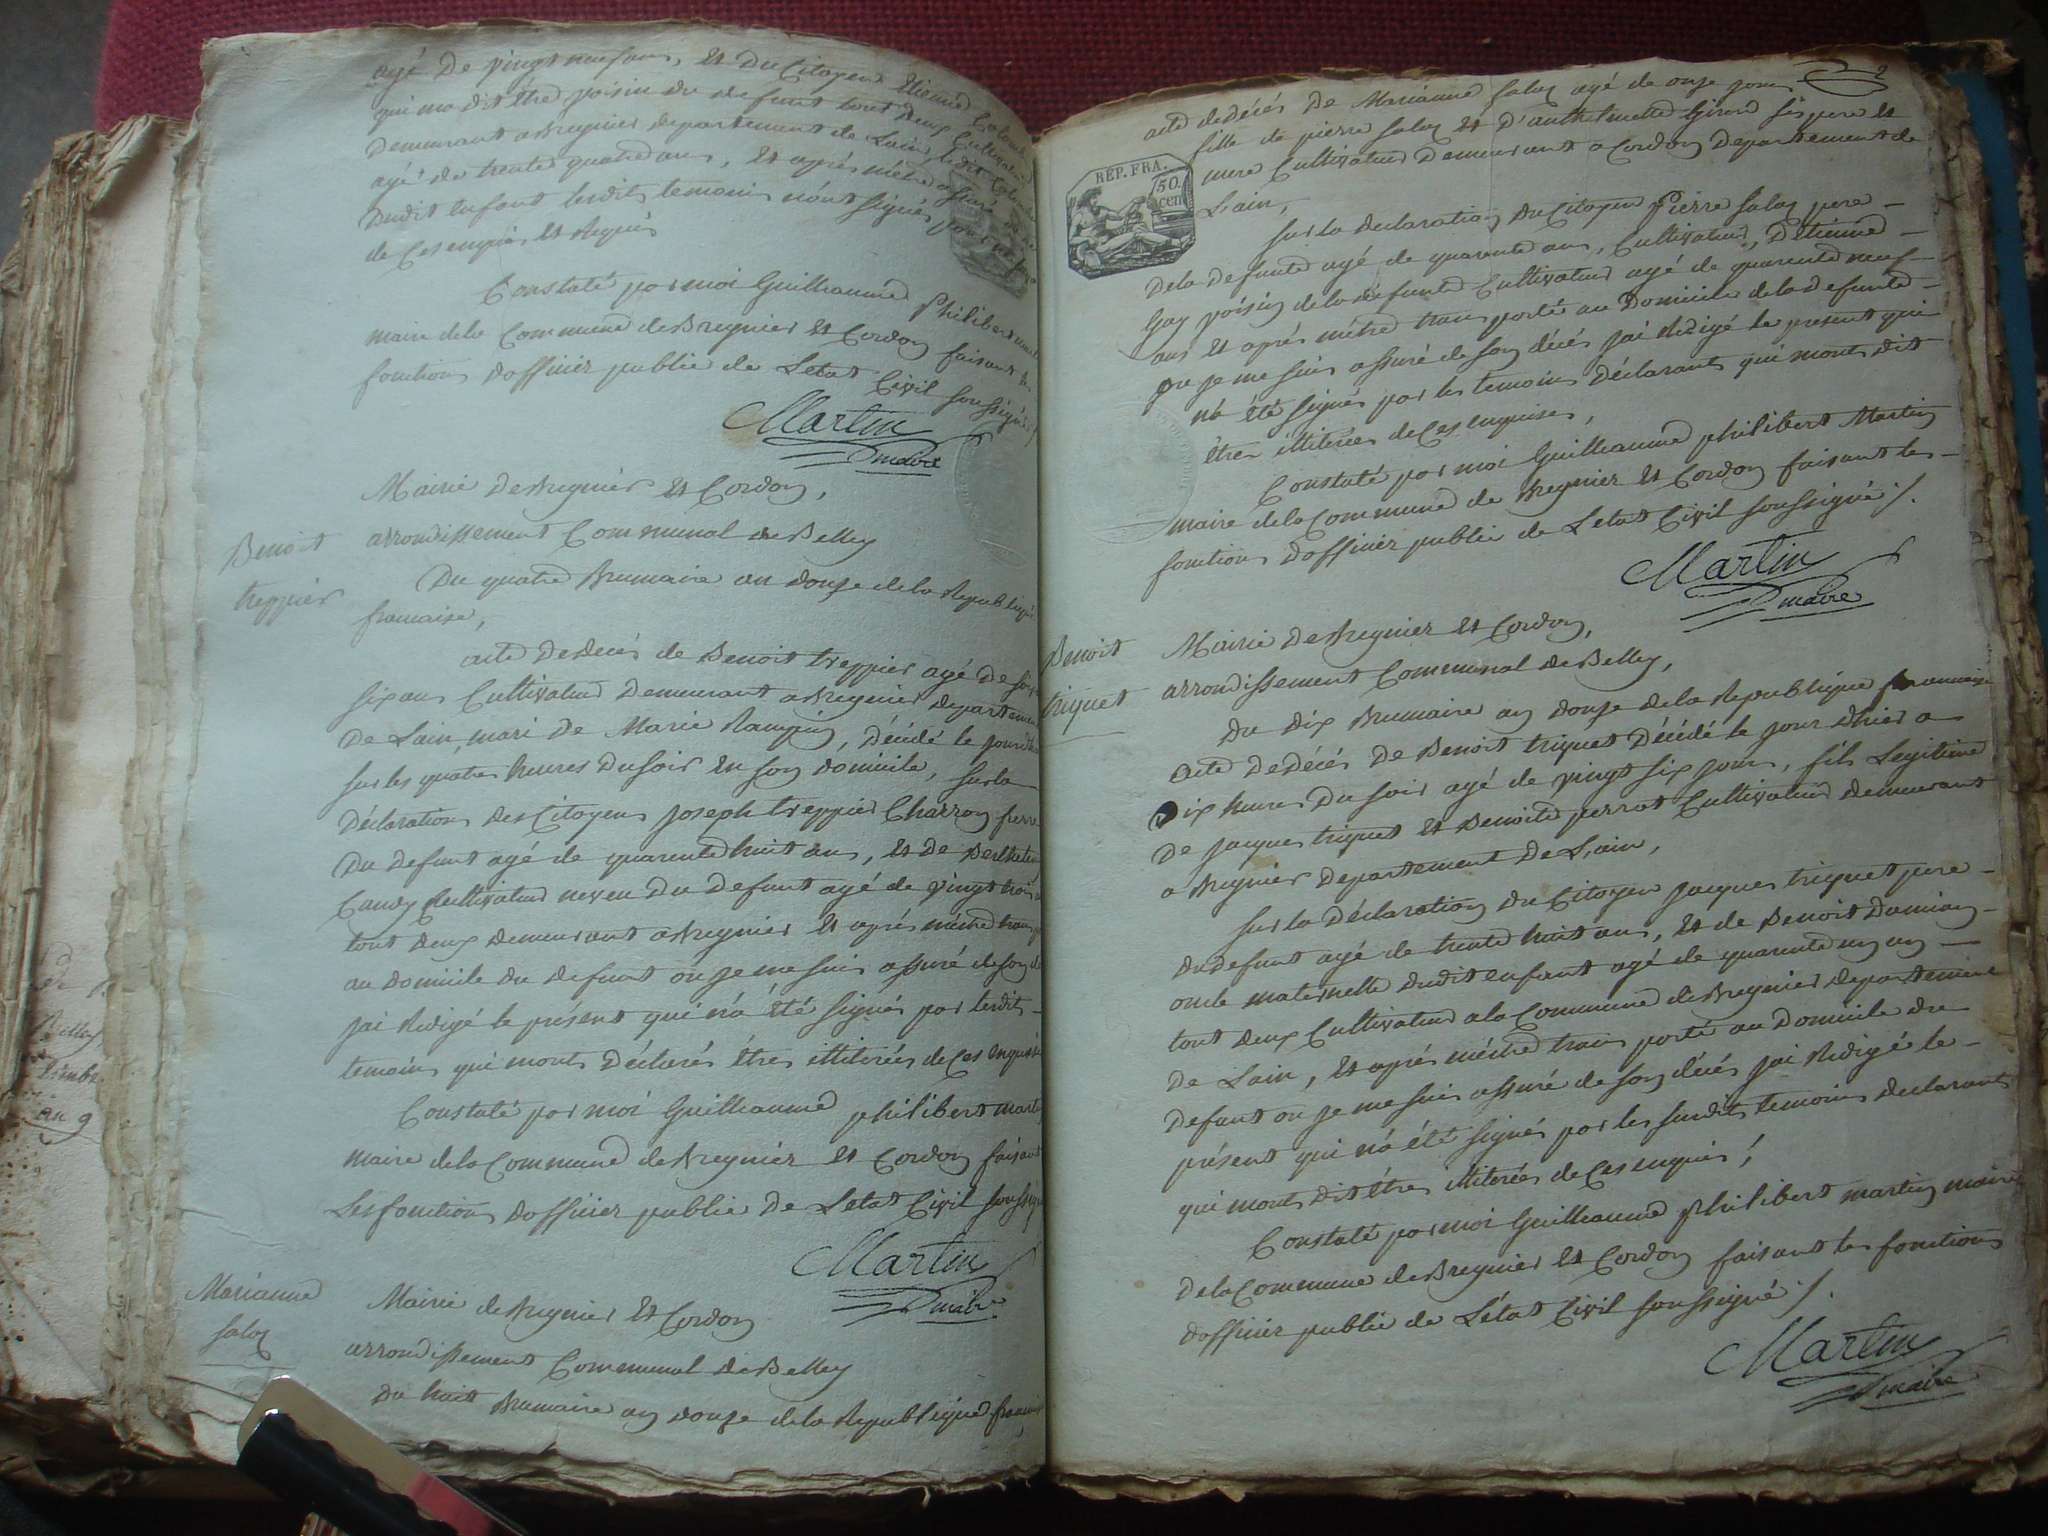 agé de vingt neuf ans, et du Citoyen Etienne
qui ma dit être voisin du defunt tout deux Cultivateur
demeurant a Bregnier departement de Lain, ledit
agé de trente quatre ans, et aprés mêtre assuré
dudit enfant lesdits temoins n'ont signés pour
de Ces enquis et Requis
Constaté par moi Guilleaume Philibert
maire de la Commune de Bregnier et Cordon faisant les
fonctions dofficier public de Letat Civil soussigné
Martin
maire
Mairie de Bregnier et Cordon,
arrondissement Communal de Belley
Benoit
treppier
Du quatre Brumaire an douze de la Republique
francaise,
acte de décés de Benoit treppier agé de
six ans Cultivateur demeurant a Bregnier departement
de Lain, mari de Marie Rampin, décédé le jour
sur les quatre heures du soir en son domicile, sur la
déclaration des Citoyens joseph treppier Charron frere
du defunt agé de quarente huit ans, et de
Candy Cultivateur neveu du defunt agé de vingt trois
tout deux demeurant a Bregnier et aprés mêtre trans
au domicile du defunt ou je me suis assuré de son
jai Redigé le présent qui n'a été signés par lesdit
temoins qui mont déclarés êtres illiterés de Ces enquis
Constaté par moi Guilleaume philibert martin
maire de la Commune de Bregnier et Cordon faisant
Les fonctions dofficier public de Letat Civil soussigné
Martin
maire
Marianne
salaz
Mairie de Bregnier et Cordon
arrondissement Communal de Belley
du huit Brumaire an douze de la Republique francaise
2
acte de décés de Marianne salaz agé de onze jours
fille de pierre salaz et d'anthelmette Girerd ses pere et
mere Cultivateur demeurant a Cordon departement de
Lain,
REP. FRA.
50
cen
sur la declaration du Citoyen Pierre salaz pere
de la defunte agé de quarente ans, Cultivateur, d'etienne
Gay voisin de la defunte Cultivateur agé de quarente neuf
ans et aprés mêtre trans porté au domicile de la defunte
ou je me suis assuré de son décés jai Redigé le present qui
n'a été signés par les temoins déclarants qui mont dit
êtres illiterés de Ces enquises,
Constaté par moi Guilleaume philibert Martin
maire de la Commune de Bregnier et Cordon faisant les
fonctions dofficier public de Letat Civil soussigné /.
Martin
maire
Benoit
triquet
Mairie de Bregnier et Cordon,
arrondissement Communal de Belley,
Du dix Brumaire an douze de la Republique francaise
acte de décés de Benoit triquet décédé le jour dhier a
Dix heures du soir agé de vingt six jours, fils Legitime
de jacques triquet et Benoite perrot Cultivateur demeurant
a Bregnier departement de Lain,
sur la déclaration du Citoyen jacques triquet pere
du defunt agé de trente huit ans, et de Benoit Damian
oncle maternelle dudit enfant agé de quarente un an
tout deux Cultivateur a la Commune de Bregnier departement
de Lain, et aprés mêtre trans porté au domicile du
defunt ou je me suis assuré de son décés jai Redigé le
présent qui n'a été signés par les susdits temoins declarants
qui mont dit êtres illiterés de Ces enquis,
Constaté par moi Guilleaume philibert martin maire
de la Commune de Bregnier et Cordon faisant les fonctions
dofficier public de L'état Civil soussigné /.
Martin
maire
an 9